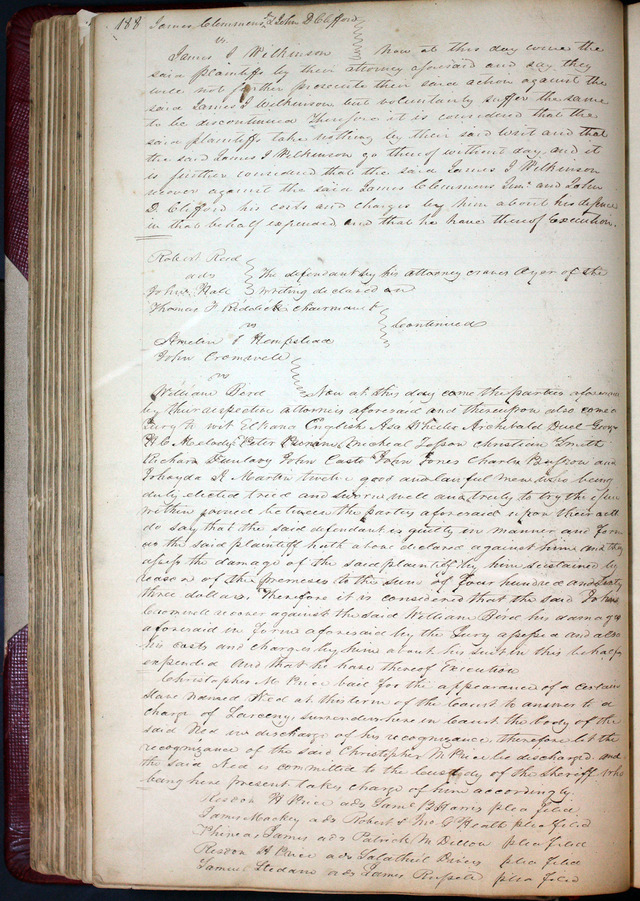 188 James Clemmens Jr & John D Clifford
vs
James J Wilkinson Now at this day come the
said plaintiffs by their attorney aforesaid and say they
will not further prosecute their said action against the
said James J Wilkinson but voluntarily suffer the same
to be discontinued Therefore it is considered that the
said plaintiffs take nothing by their said writ and that
the said James J Wilkinson go thereof without day and it
is further considered that the said James J Wilkinson
recover against the said James Clemmens Junr and John
D. Clifford his costs and charges by him about his defence
in that behalf expended and that he have thereof Execution.
Robert Reed
ads
John Hall The defendant by his Attorney craves Oyer of the
writing declared on
Thomas F Reddick chairman &
vs Continued
Amelia J Hempstead
John Cromwell
vs
William Bird Now at this day come the parties aforesaid
by their respective attornies aforesaid and thereupon also came a
Jury to wit Elkana English Asa Wheeler Archibald Duel George
H C Melody Peter Michael Christian Smith
Richard John Casto John Jones Charles and
R Martin twelve good and lawful men who being
duly elected tried and sworn well and truly to try the issue
within joined between the parties aforesaid upon their oath
do say that the said defendant is guilty in manner and form
as the said plaintiff hath above declared against him and they
assess the damage of the said plaintiff by him sustained by
reason of the premises to the sum of four hundred and
three dollars. Therefore it is considered that the said John
Cromwell recover against the said William Bird his damages
aforesaid in form aforesaid by the Jury assessed and also
his costs and charges by him about his suit in this behalf
expended And that he have thereof Execution
Christopher M Price bail for the appearance of a certain
slave named Ned at this term of the Court to answer to a
charge of Larceny, surrenders here in Court the body of the
said Ned in discharge of his recognizance, therefore let the
recognizance of the said Christopher M Price be discharged and
the said Ned is committed to the custody of the Sheriff who
being here present takes charge of him accordingly
Risdon H Price ads Saml B Harris plea filed
James Mackey ads Robert & Jno G Heath plea filed
Phineas James ads Patrick M Dillon plea filed
Risdon H Price ads plea filed
Samuel ads James Russell plea filed